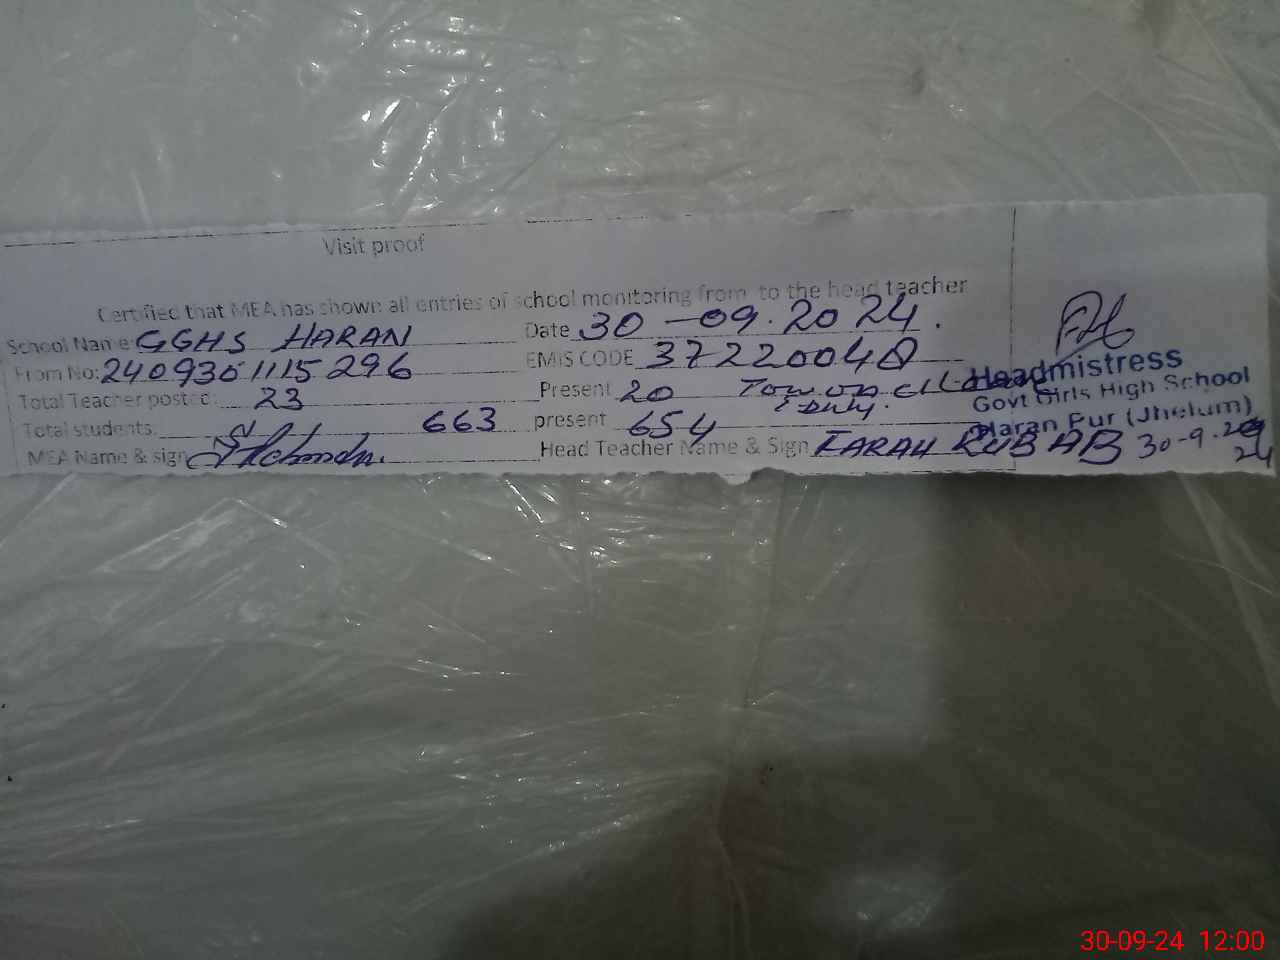 Visit proof
Certified that MEA has shown all entries of school monitoring from to the head teacher
School Name: GGHS HARAN Date 30-09.2024.
From No: 240930 1115 296 EMIS CODE 37220048
Total Teacher posted: 23 Present 20 Tow on
Duty.
Total students: 663 present 654
MEA Name & sign Head Teacher Name & Sign FARAH RUBAB 30-9-2024
Headmistress
Govt Girls High School
Haran Pur (Jhelum)
30-09-24 12:00